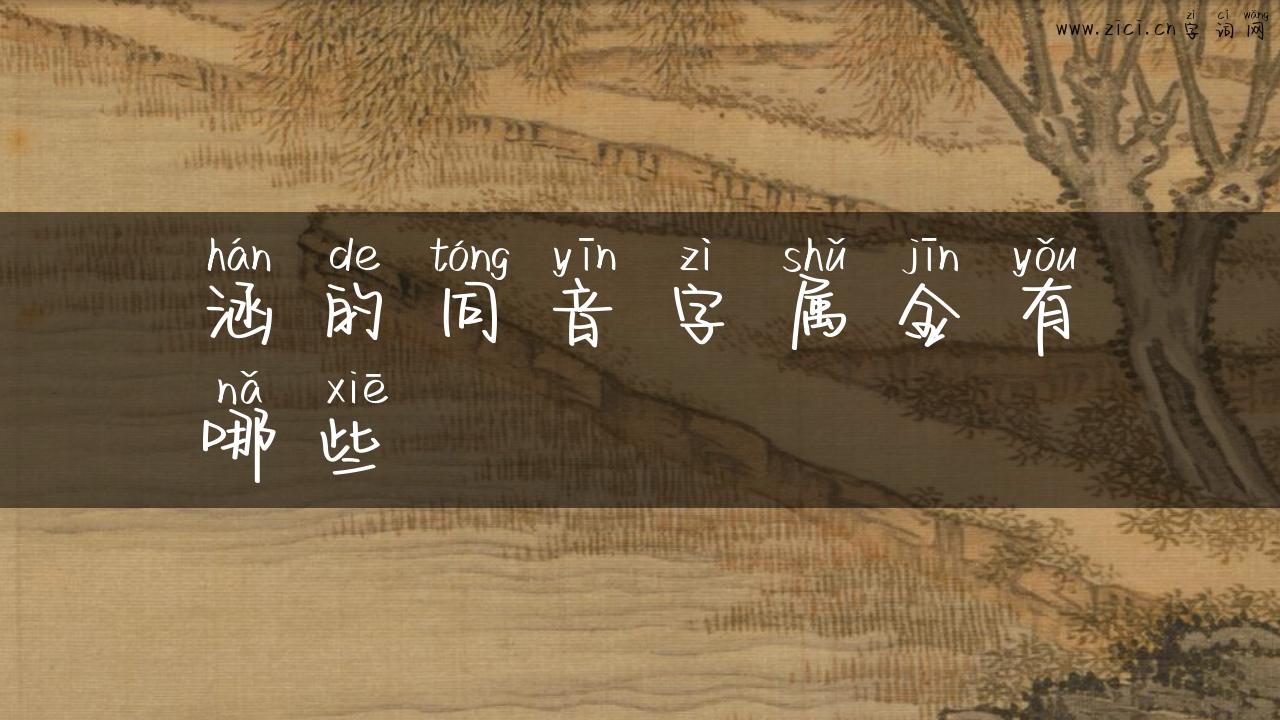 zì cí wǎng
www.zici.cn字词网
hán de tóng yīn zì shǔ jīn yǒu
涵的同音字属金有
nǎ xiē
哪些